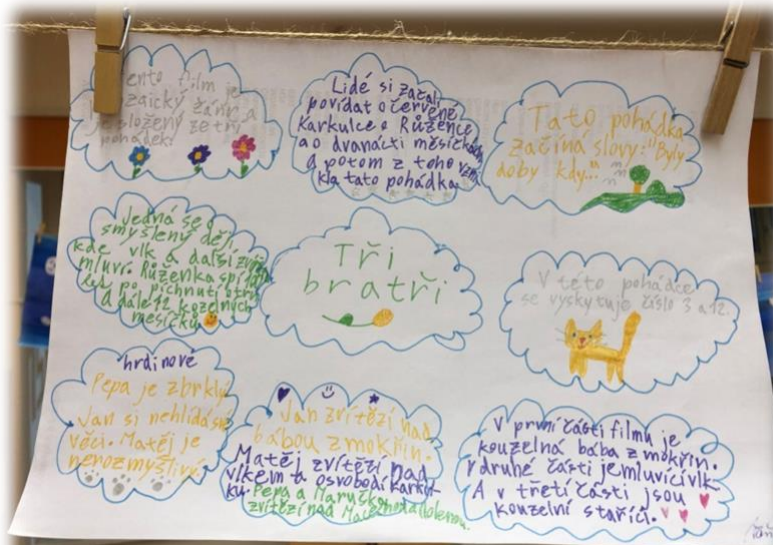 ento film je
mozaický žánr a
je složený ze tří
pohádek.
Lidé si začali
povídat o červené
Karkulce o Růžence
a o dvanácti měsíčkách
a potom z toho vzni
kla tato pohádka.
Tato pohádka
začíná slovy: "Byly
doby kdy..."
Jedná se o
smyšlený děj,
kde vlk a další zvíř
mluví. Růženka spí 100
let po píchnutí o trn
a dále 12 kozelných
mesíčků
Tři
bratři
V této pohádce
se vyskytuje číslo 3 a 12.
hrdinové
Pepa je zbrklý
Jan si nehlídá své
věci. Matěj je
nerozmyšlivý
Jan zvítězí nad
bábou z mokřin.
Matěj zvítězí nad
vlkem a osvobodí Karkul-
ku. Pepa a Maruška
zvítězí nad Macechou a Holenou.
V první části filmu je
kouzelná bába z mokřin.
V druhé části je mluvící vlk.
A v třetí části jsou
kouzelní staříci.